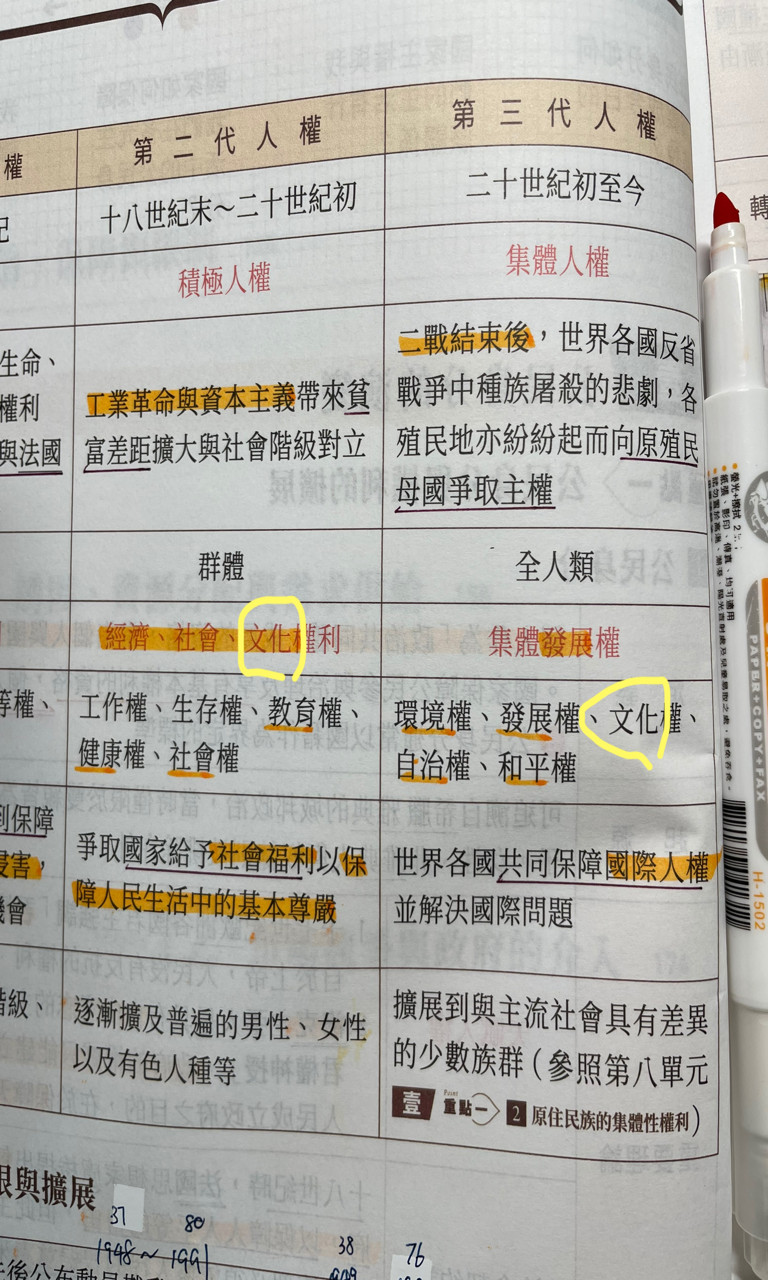 權
第二代人權
第三代人權
十八世紀末～二十世紀初
二十世紀初至今
積極人權
集體人權
生命、
權利
與法國
工業革命與資本主義帶來貧
富差距擴大與社會階級對立
二戰結束後，世界各國反省
戰爭中種族屠殺的悲劇，各
殖民地亦紛紛起而向原殖民
母國爭取主權
群體
全人類
經濟、社會、文化權利
集體發展權
等權、
工作權、生存權、教育權、
健康權、社會權
環境權、發展權、文化權、
自治權、和平權
到保障
侵害，
機會
爭取國家給予社會福利以保
障人民生活中的基本尊嚴
世界各國共同保障國際人權
並解決國際問題
階級、
逐漸擴及普遍的男性、女性
以及有色人種等
擴展到與主流社會具有差異
的少數族群（參照第八單元
壹 Point 重點一 2 原住民族的集體性權利）
與擴展
37 80
1948～1991
38 76
轉
PAPER+COPY+FAX
H-1502